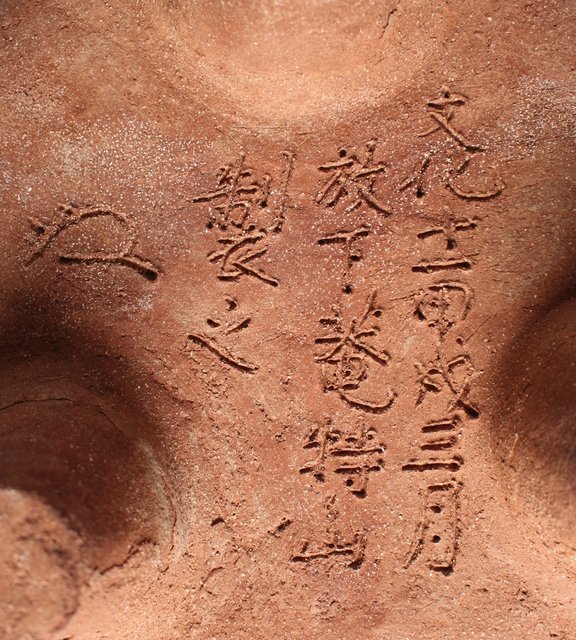 文化十一甲戌三月
放下菴特山
製之